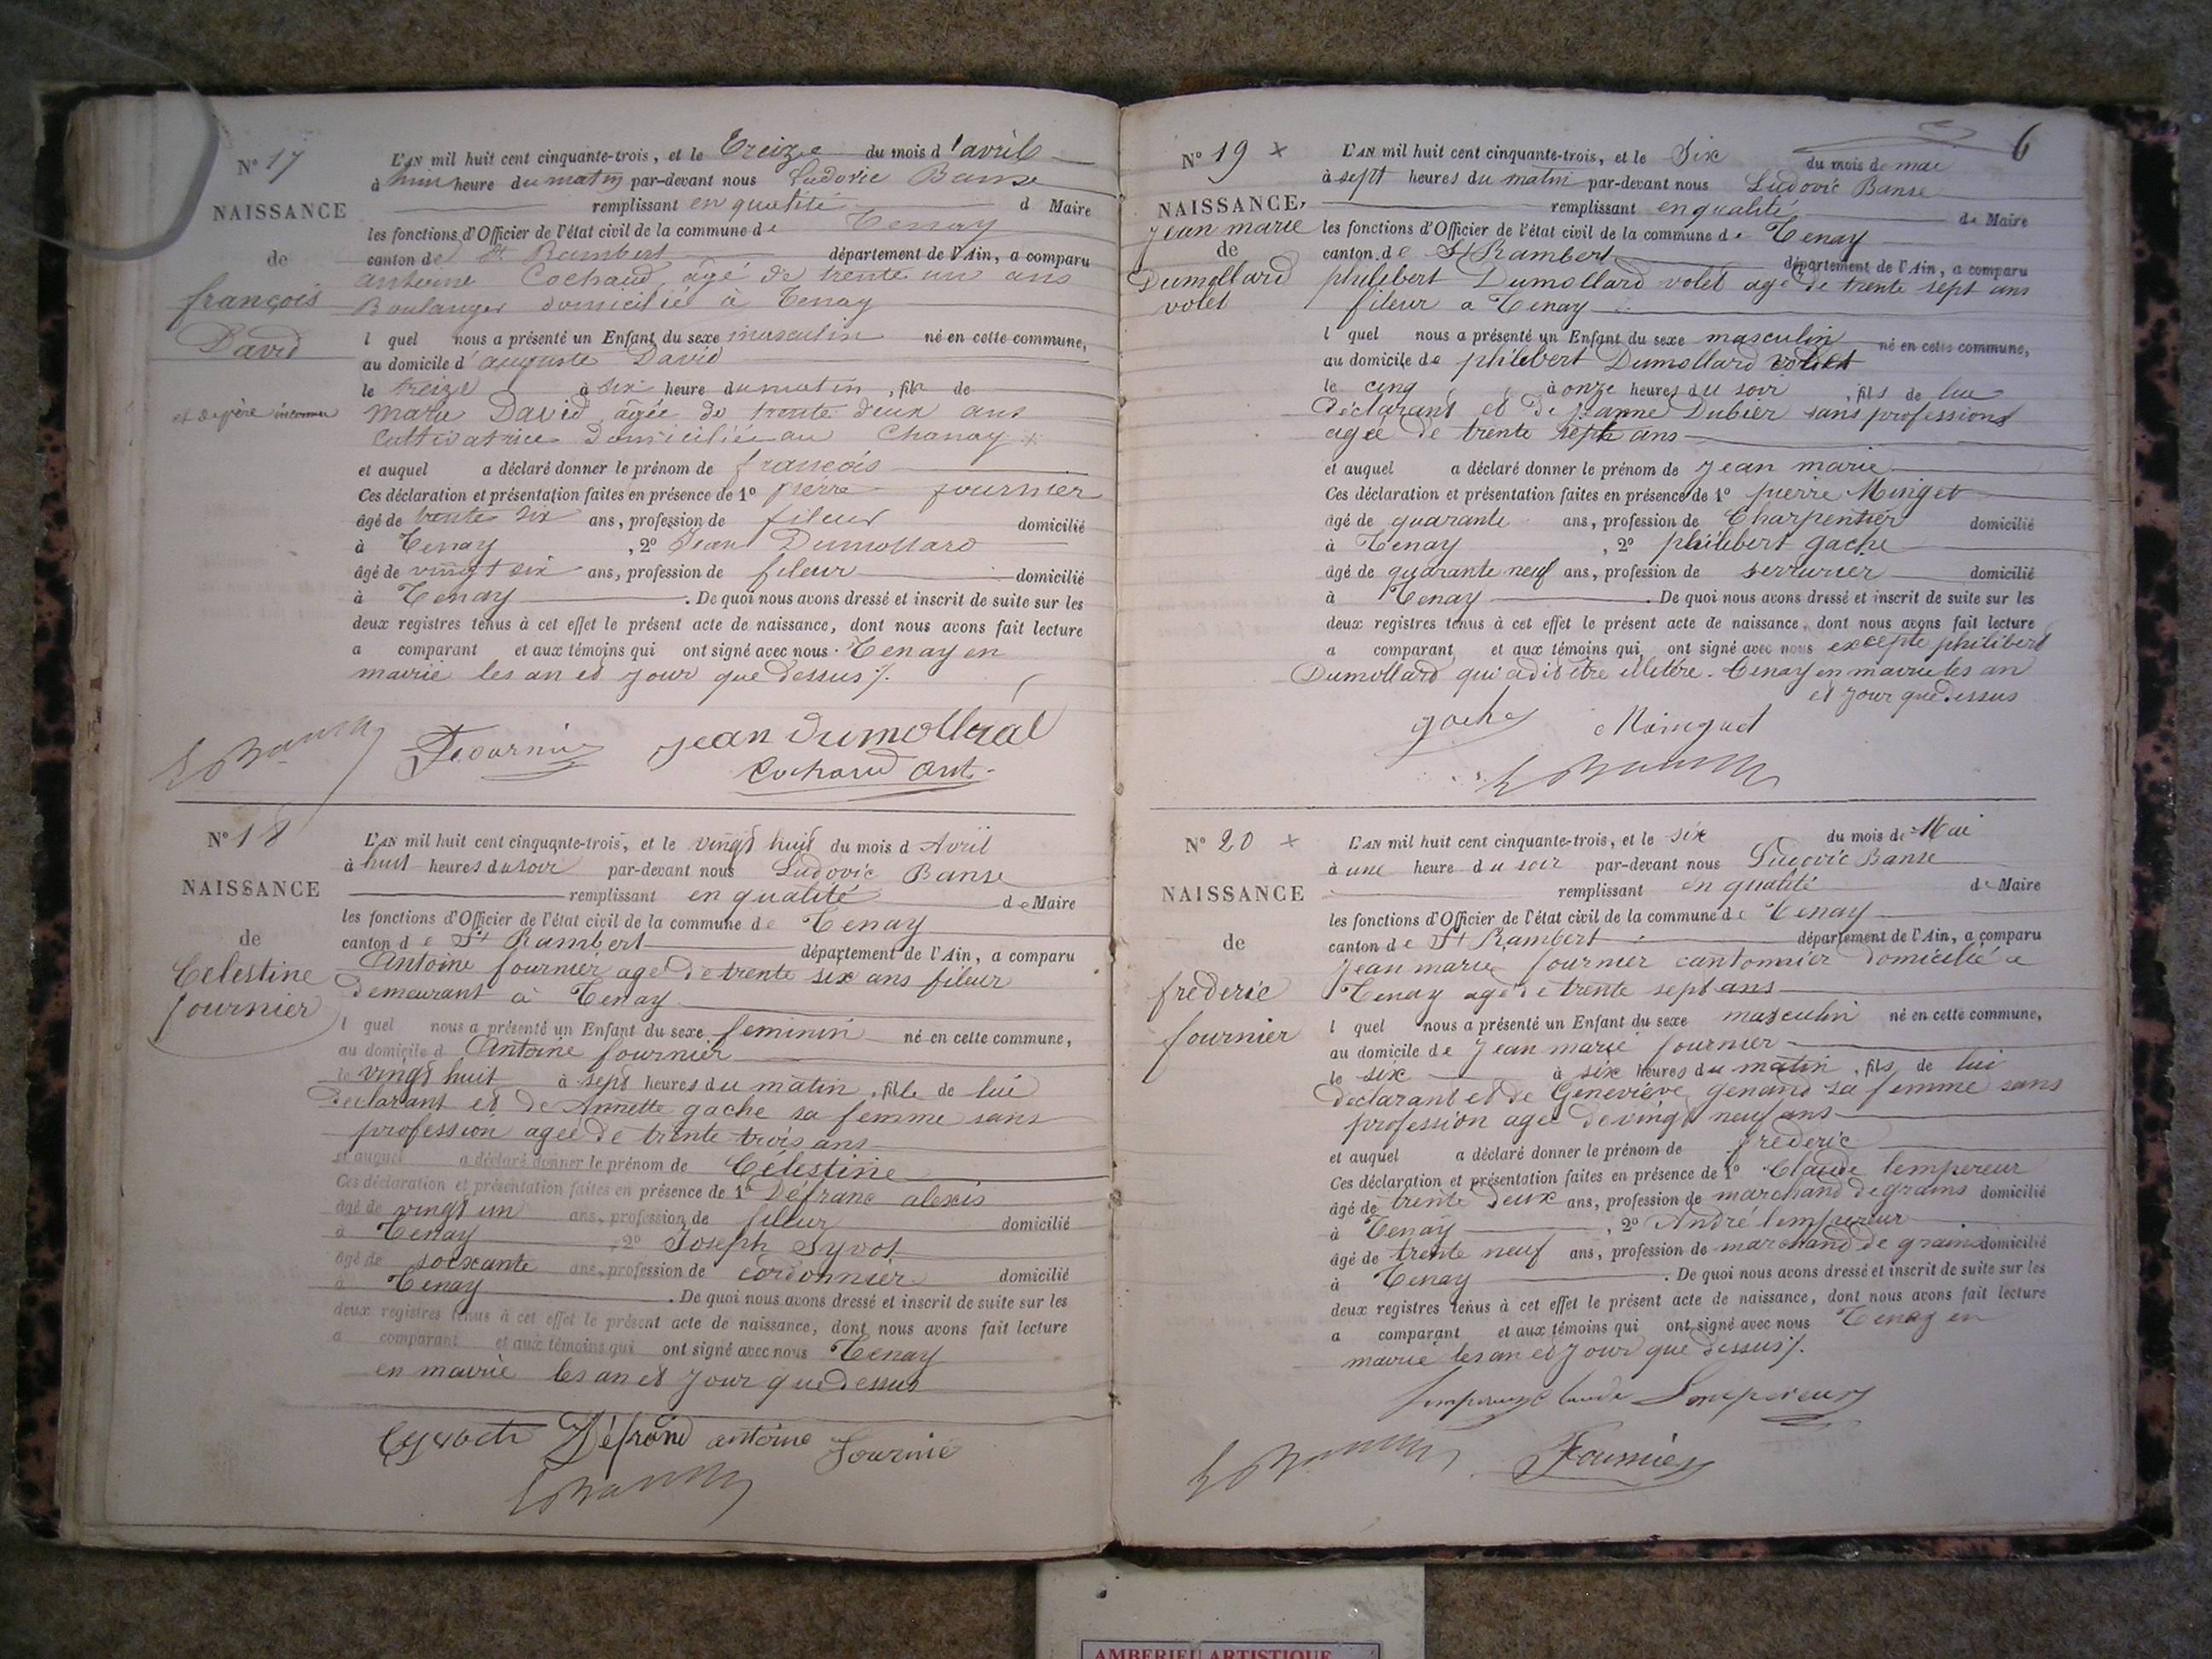 N° 17
NAISSANCE
de
françois
David
et de père inconnu
L'AN mil huit cent cinquante-trois, et le treize du mois d'avril
à huit heure du matin par-devant nous Ludovic Banse
remplissant en qualité de Maire
les fonctions d'Officier de l'état civil de la commune de Tenay
canton de St Rambert département de l'Ain, a comparu
antoine Cochaud, agé de trente un ans
Boulanger domicilié à Tenay
l quel nous a présenté un Enfant du sexe masculin né en cette commune,
au domicile d'auguste David
le treize à six heure du matin, fils de
marie David agée de trente deux ans
Cultivatrice domiciliée au Chanay
et auquel a déclaré donner le prénom de françois
Ces déclaration et présentation faites en présence de 1° pierre fournier
âgé de trente six ans, profession de fileur domicilié
à Tenay, 2° Jean Dumollard
âgé de vingt six ans, profession de fileur domicilié
à Tenay. De quoi nous avons dressé et inscrit de suite sur les
deux registres tenus à cet effet le présent acte de naissance, dont nous avons fait lecture
a comparant et aux témoins qui ont signé avec nous. Tenay en
mairie les an et jour que dessus
Fournier jean dumollral
Cochaud ant
N° 18
NAISSANCE
de
Celestine
fournier
L'AN mil huit cent cinquante-trois, et le vingt huit du mois d Avril
à huit heures du soir par-devant nous Ludovic Banse
remplissant en qualité de Maire
les fonctions d'Officier de l'état civil de la commune de Tenay
canton de St Rambert département de l'Ain, a comparu
Antoine fournier agé de trente six ans fileur
demeurant à Tenay
l quel nous a présenté un Enfant du sexe feminin né en cette commune,
au domicile d Antoine fournier
le vingt huit à sept heures du matin, fille de lui
declarant et de Annette gache sa femme sans
profession agée de trente trois ans
et auquel a déclaré donner le prénom de Célestine
Ces déclaration et présentation faites en présence de 1° Défranc alexis
âgé de vingt un ans, profession de fileur domicilié
à Tenay, 2° Joseph Syvot
âgé de soixante ans, profession de cordonnier domicilié
à Tenay. De quoi nous avons dressé et inscrit de suite sur les
deux registres tenus à cet effet le présent acte de naissance, dont nous avons fait lecture
a comparant et aux témoins qui ont signé avec nous Tenay
en mairie les an et jour que dessus
Défrand antoine fournié
6
N° 19 ×
NAISSANCE,
jean marie
de
Dumollard
volet
L'AN mil huit cent cinquante-trois, et le Six du mois de mai
à sept heures du matin par-devant nous Ludovic Banse
remplissant en qualité de Maire
les fonctions d'Officier de l'état civil de la commune de Tenay
canton de St Rambert département de l'Ain, a comparu
philibert Dumollard volet agé de trente sept ans
fileur a Tenay
l quel nous a présenté un Enfant du sexe masculin né en cette commune,
au domicile de philibert Dumollard volet
le cinq à onze heures du soir, fils de lui
déclarant et de jeanne Dubier sans professions
agée de trente sept ans
et auquel a déclaré donner le prénom de jean marie
Ces déclaration et présentation faites en présence de 1° pierre Minget
âgé de quarante ans, profession de Charpentier domicilié
à Tenay, 2° philibert gache
âgé de quarante neuf ans, profession de serrurier domicilié
à Tenay. De quoi nous avons dressé et inscrit de suite sur les
deux registres tenus à cet effet le présent acte de naissance, dont nous avons fait lecture
a comparant et aux témoins qui ont signé avec nous excepté philibert
Dumollard qui a dit être illitére. Tenay en mairie les an
et jour que dessus
gache Mainguet
N° 20 ×
NAISSANCE
de
frederic
fournier
L'AN mil huit cent cinquante-trois, et le six du mois de Mai
à une heure du soir par-devant nous Ludovic Banse
remplissant en qualité de Maire
les fonctions d'Officier de l'état civil de la commune de Tenay
canton de St Rambert département de l'Ain, a comparu
Jean marie fournier cantonnier domicilié a
Tenay agé de trente sept ans
l quel nous a présenté un Enfant du sexe masculin né en cette commune,
au domicile de Jean marie fournier
le six à six heures du matin, fils de lui
déclarant et de Geneviève genand sa femme sans
profession agée de vingt neuf ans
et auquel a déclaré donner le prénom de frederic
Ces déclaration et présentation faites en présence de 1° Claude lempereur
âgé de trente deux ans, profession de marchand de grains domicilié
à Tenay, 2° André lempereur
âgé de trente neuf ans, profession de marchand de grains domicilié
à Tenay. De quoi nous avons dressé et inscrit de suite sur les
deux registres tenus à cet effet le présent acte de naissance, dont nous avons fait lecture
a comparant et aux témoins qui ont signé avec nous Tenay en
mairie les an et jour que dessus
Lempereur
Fournier
AMBERIEU ARTISTIQUE